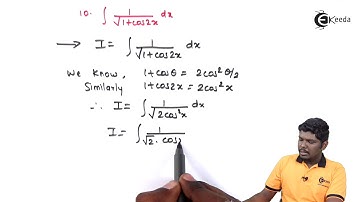 10. ∫ 1/√(1+cos2x) dx
→ I = ∫ 1/√(1+cos2x) dx
We know, 1+cosθ = 2cos²θ/2
Similarly 1+cos2x = 2cos²x
∴ I = ∫ 1/√(2cos²x) dx
I = ∫ 1/√2 · cosx
Ekeeda